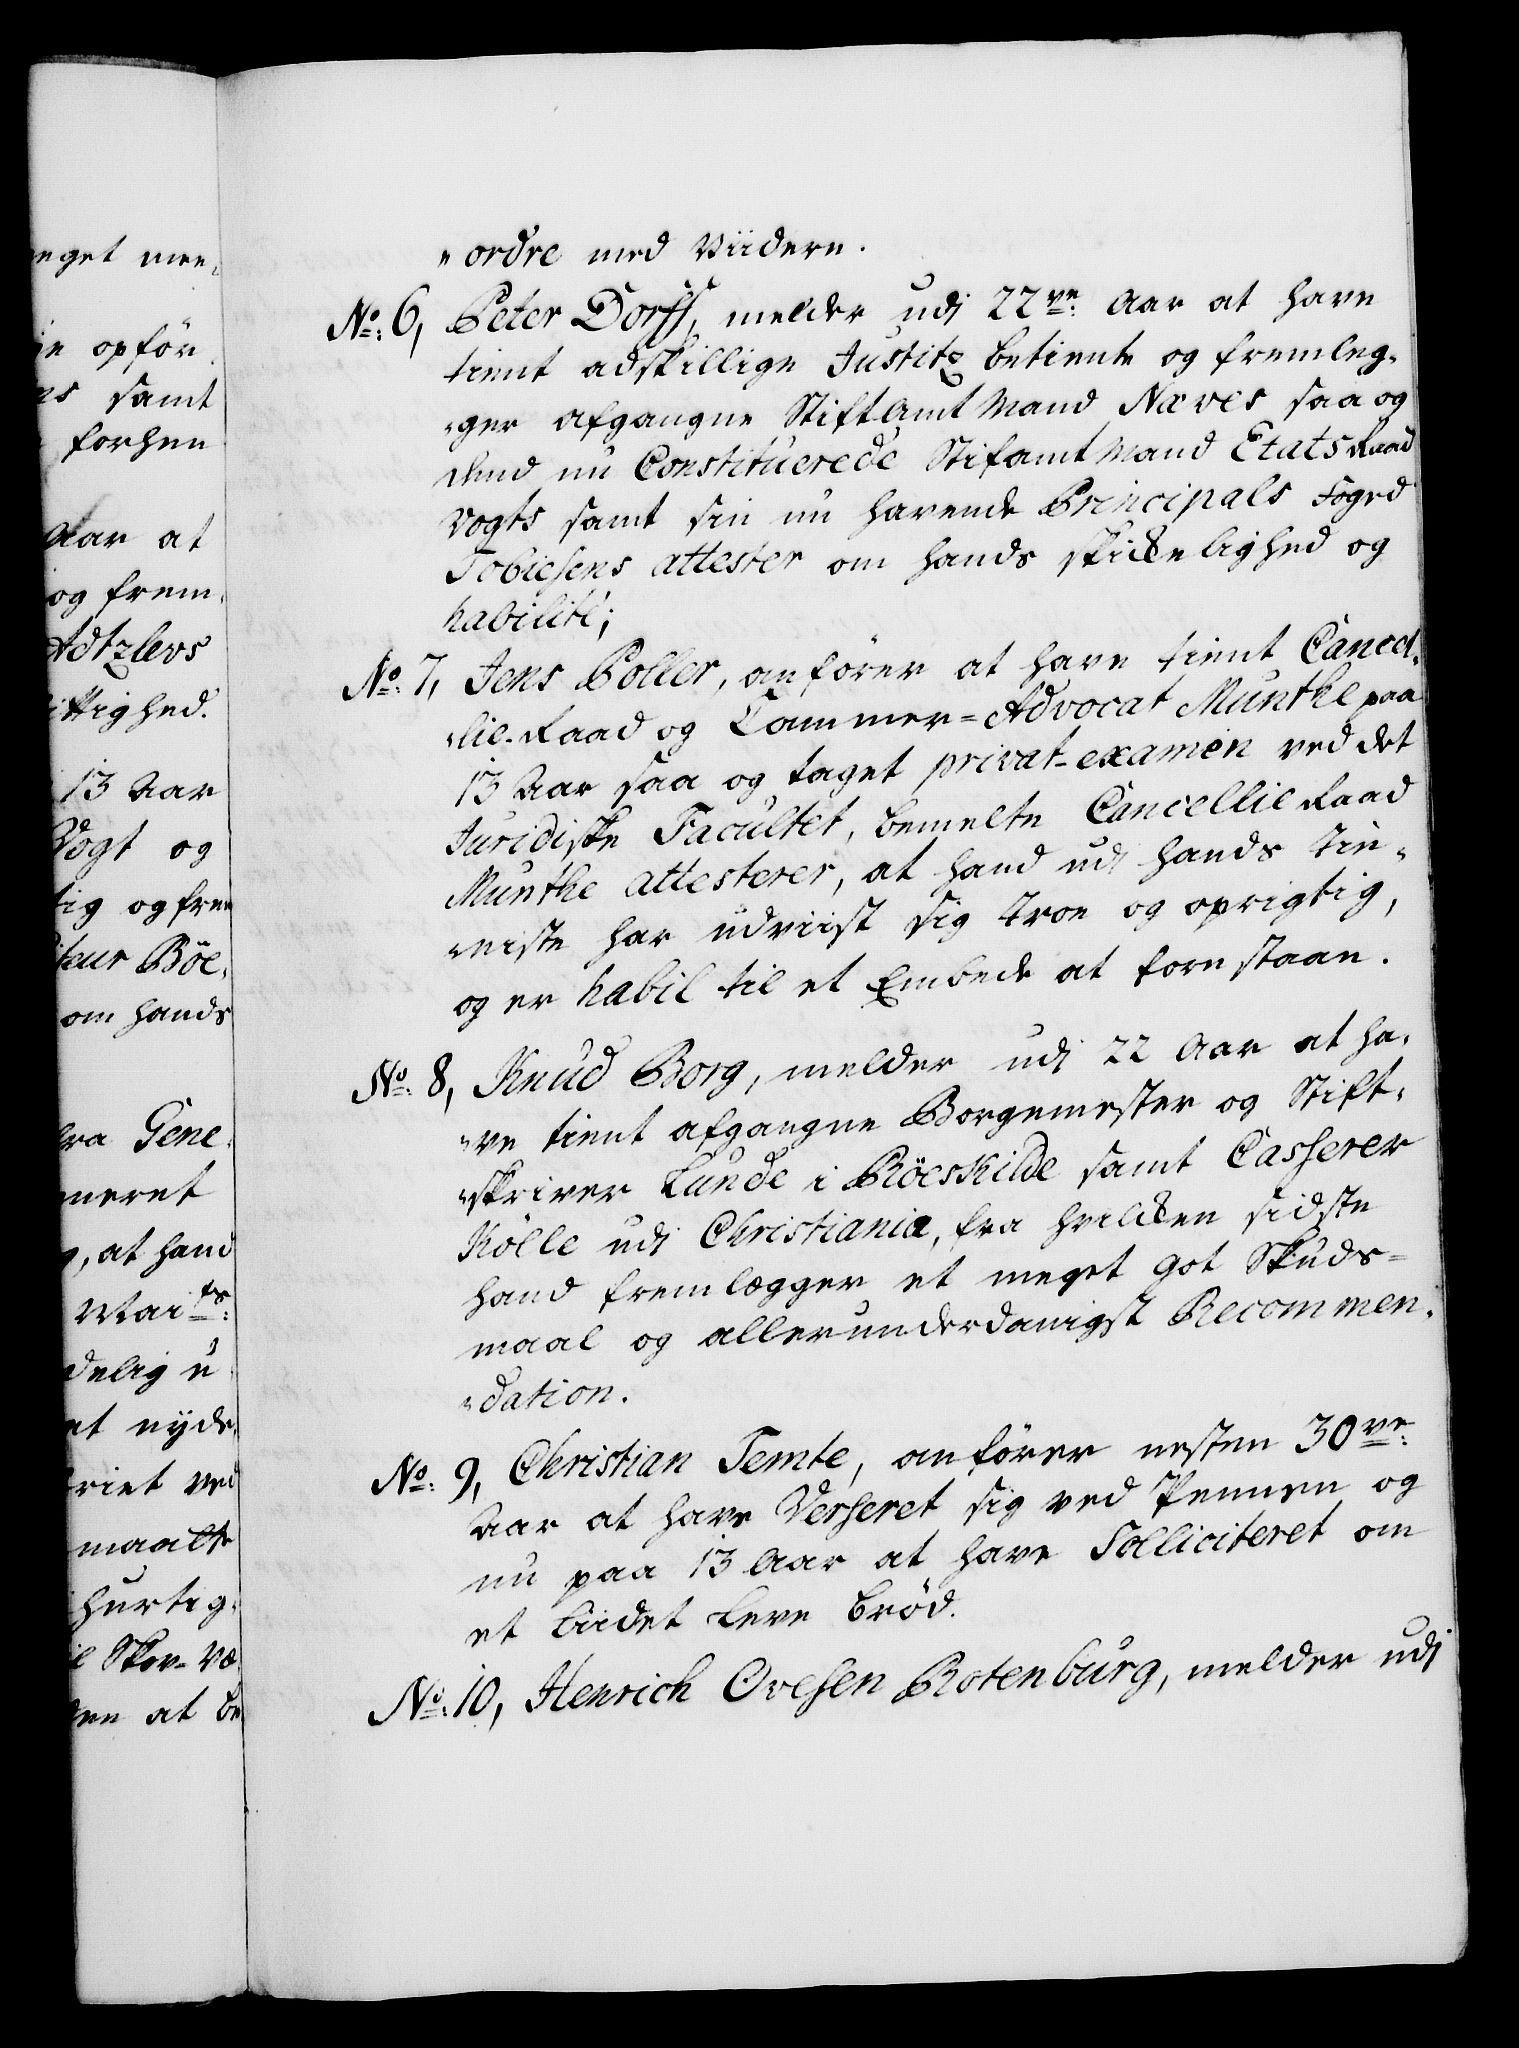 eget mee¬
ie opför
ns samt
forhen
Aar at
og frem¬
Adtzlevs
ittighed.
13 Aar
Vogt og
tig og frem
iteur Böe¬
om hands
fra Gene¬
neret
g, at hand
Mai ts:
delig u
et nyde
riet ved
maalte
hurtig¬
il Skov-Væ
gen at be
"ordre med Viidere.
No: 6, Peter Dorff, melder udi 22ve: Aar at have
tient adskillige Justitz betiente og fremleg¬
"ger afgangne Stiftamtmand Næves saa og
dend nu Constituerede Stifamtmand Etats Raad
Vogts samt sin nu havende Principals Foged
Tobiesens attester om hands skikkelighed og
habilité;
No: 7, Jens Poller, anfører at have tient Cancel¬
"lie-Raad og Cammer=Advocat Munthe paa
13 Aar saa og taget privat-examen ved det
Juridiske Facultet, bemelte Cancellie Raad
Munthe attesterer, at hand udi hands tie¬
"niste har udviist sig troe og oprigtig,
og er habil til et Embede at forestaae.
No: 8, Knud Borg, melder udi 22 Aar at ha¬
"ve tient afgangne Borgemester og Stift¬
"skriver Lunde i Röeskilde samt Casserer
Kölle udi Christiania, fra hvilken sidste
hand fremlægger et meget got Skuds=
maal og allerunderdanigst Recommen¬
"dation.
No: 9, Christian Temte, anfører nesten 30ve:
Aar at have Verseret sig ved Pennen og
nu paa 13 Aar at have Solliciteret om
et liidet leve brød.
No: 10, Henrich Ovesen Rotenburg, melder udi